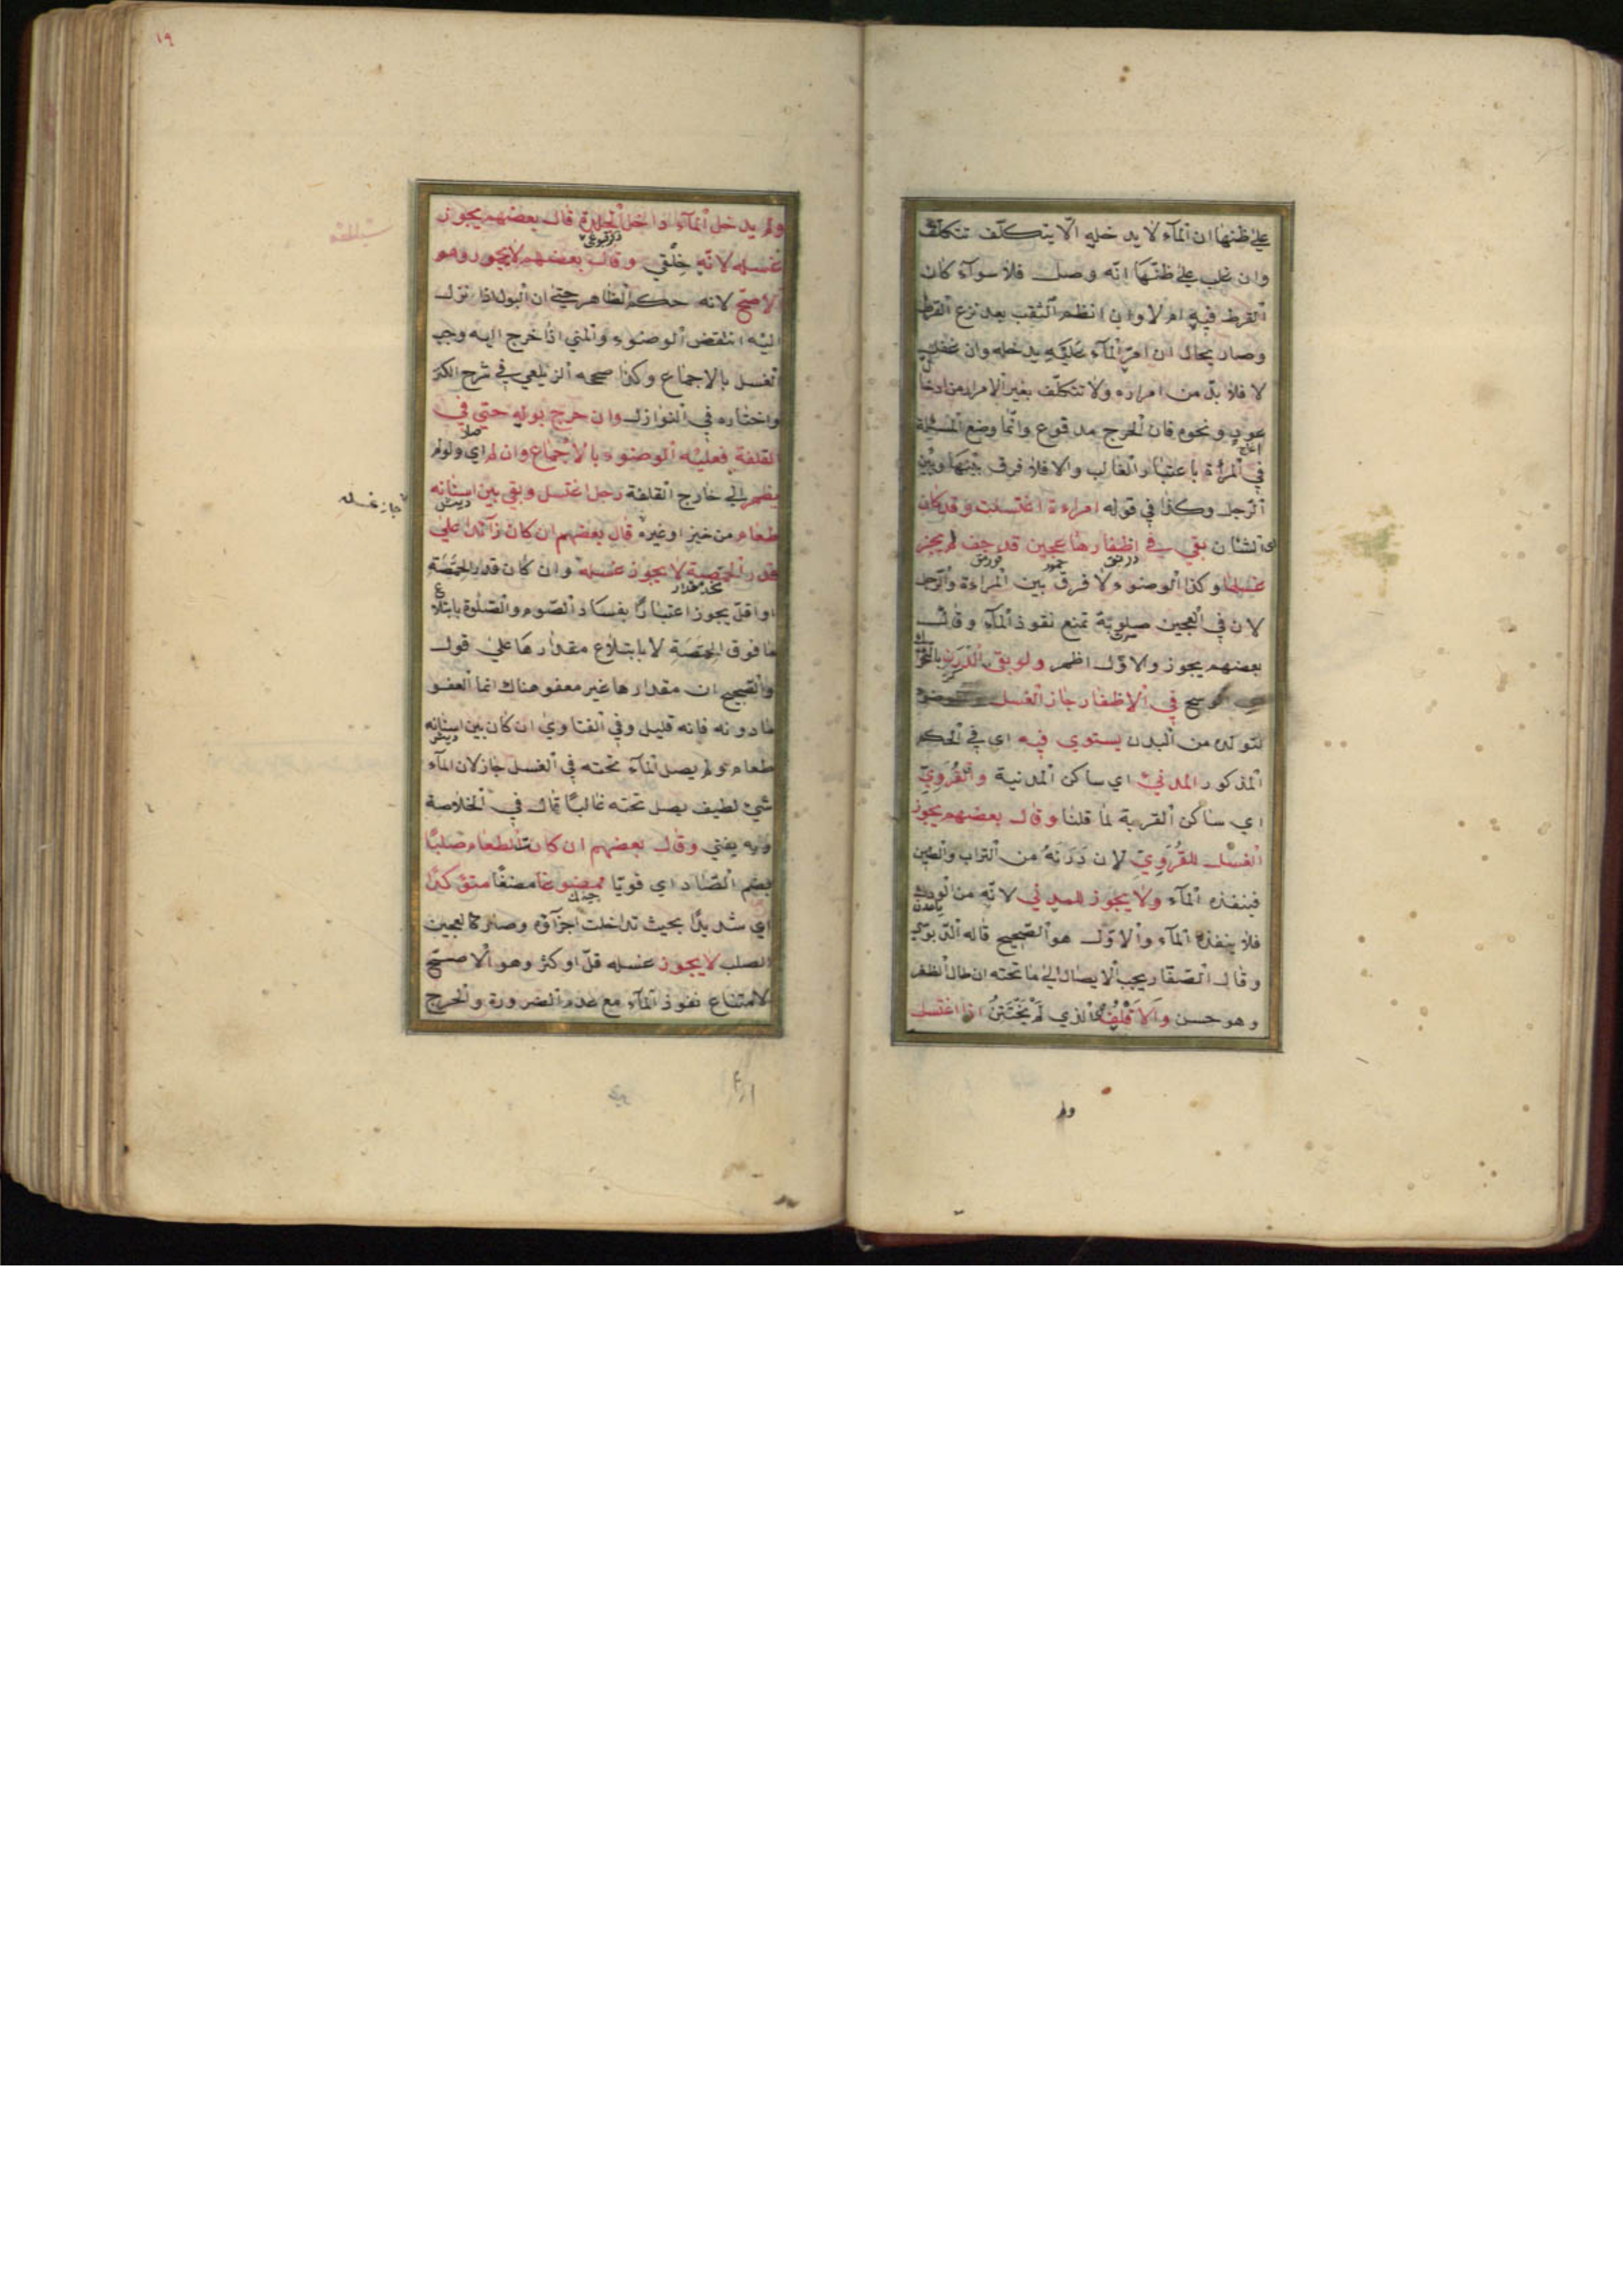 على ظنها ان المآء لا يدخله الّا يتكلّف تتكلّف
وان غلب على ظنّها انّه وصل فلا سوآء كان
القرط فيه ام لا وان انظم الثقب بعد نزع القرط
وصار بحال ان امرّ المآء عليه يدخله وان غفلت
لا فلا بدّ من امراره ولا تتكلّف بغير الامرار من ادخا
عود ونحوه فان الحرج مدفوع وانّما وضع المسئلة
في المرأة باعتبار الغالب والا فلا فرق بينها وبين
الرّجل وكذا في قوله امراءة اغتسلت وقد كان
الشان بقي في اظفارها عجين قد جف لم يجز
غسلها وكذا الوضوء لا فرق بين المراءة والرّجل
لان في العجين صلوبة تمنع نفوذ المآء وقال
بعضهم يجوز والاوّل اظهر ولو بقي الدّرن
وسخ في الاظفار جاز الغسل
لتولّده من البدن يستوي فيه اي في الحكم
المذكور المدنيّ اي ساكن المدنية والقرويّ
اي ساكن القرية لما قلنا وقال بعضهم يجوز
الغسل للقرويّ لان درنه من التراب والطين
فينفذه المآء ولا يجوز للمدني لانّه من الودك
فلا ينفذه المآء والاوّل هو الصّحيح قاله الدّبوسي
وقال الصّفار يجب الايصال الى ما تحته ان طال الظفر
وهو حسن والاقلف الذي لم يختتن اذا اغتسل
ولم
١٩
ولم يدخل المآء داخل الجلدة قال بعضهم يجوز
غسله لانّه خلقي وقال بعضهم لا يجوز وهو
الاصحّ لانه حكم الظاهر حتى ان البول اذا نزل
اليه انتقض الوضوء والمني اذا خرج اليه وجب
الغسل بالاجماع وكذا صححه الزيلعي في شرح الكنز
واختاره في النوازل وان خرج بوله حتى في
القلفة فعليه الوضوء بالاجماع وان لم اي ولو لم
يظهر الى خارج القلفة رجل اغتسل وبقي بين اسنانه
طعام من خبز او غيره قال بعضهم ان كان زآئدا على
قدر الحمّصة لا يجوز غسله وان كان قدر الحمّصة
او اقلّ يجوز اعتبارًا بفساد الصّوم والصّلوة بابتلاع
ما فوق الحمّصة لا بابتلاع مقدارها على قول
والصحيح ان مقدارها غير معفو هناك انما العفو
ما دونه فانه قليل وفي الفتاوي ان كان بين اسنانه
طعام ولم يصل المآء تحته في الغسل جاز لان المآء
شيئ لطيف يصل تحته غالبًا قال في الخلاصة
وبه يفتي وقال بعضهم ان كان الطعام صلبًا
بضم الصّاد اي قويّا ممضوغا مضغًا متؤكدًا
اي شديدًا بحيث تداخلت اجزآؤه وصار كالعجين
الصلب لا يجوز غسله قلّ او كثر وهو الاصحّ
لامتناع نفوذ المآء مع عدم الضرورة والحرج
جاز غسله